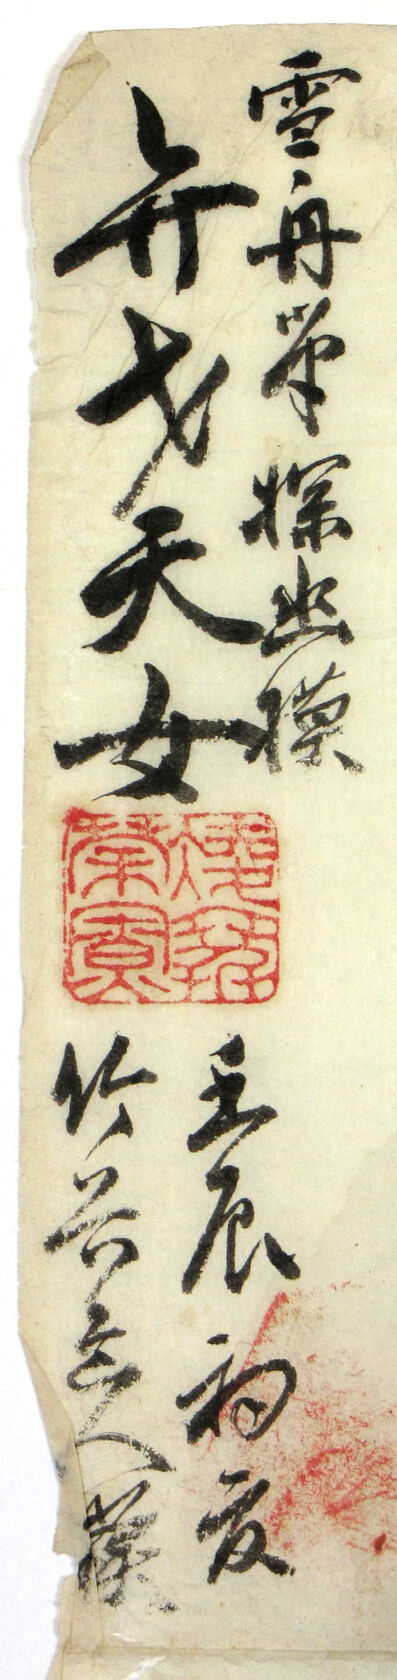 雪舟筆探幽模
弁才天女
壬辰初夏
竹谷